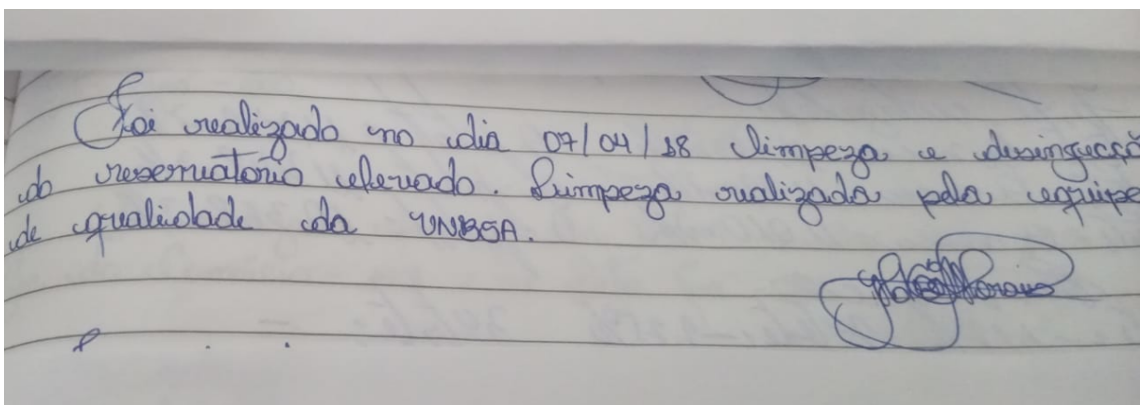 Foi realizado no dia 07/04/18 limpeza e desinfecção
do reservatório elevado. Limpeza realizada pela equipe
de qualidade da UNBSA.